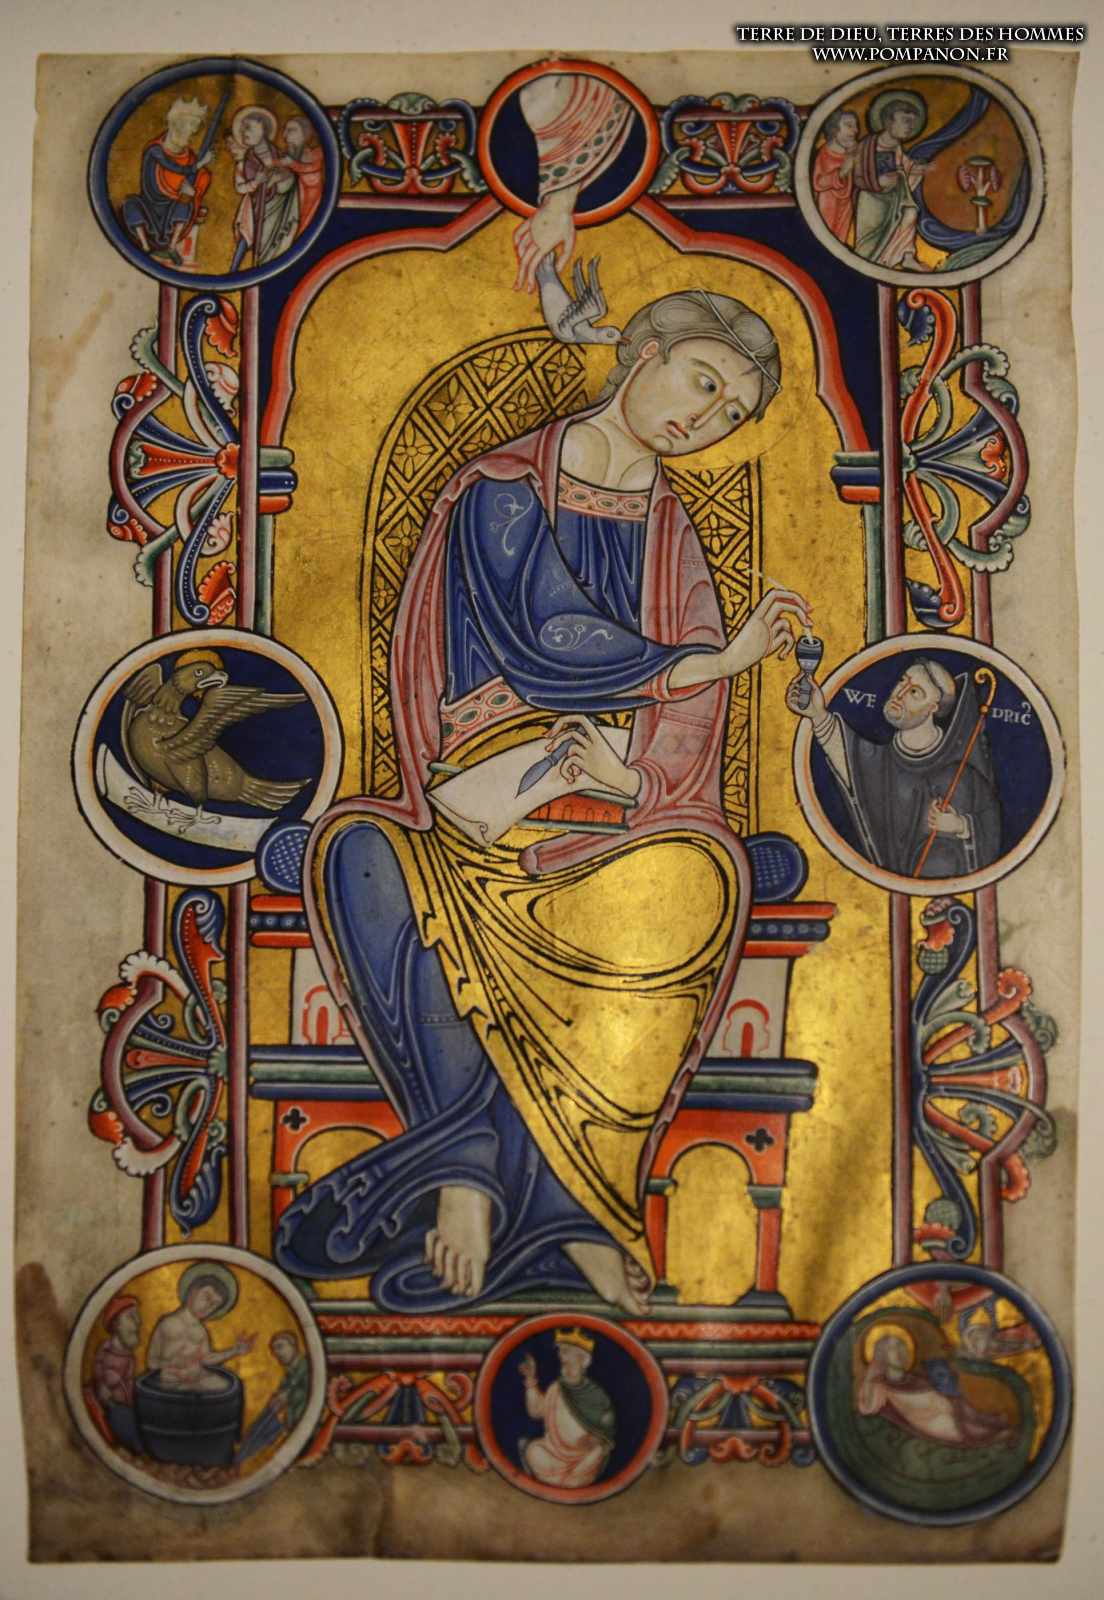 TERRE DE DIEU, TERRES DES HOMMES
WWW.POMPANON.FR
WE
DRIC